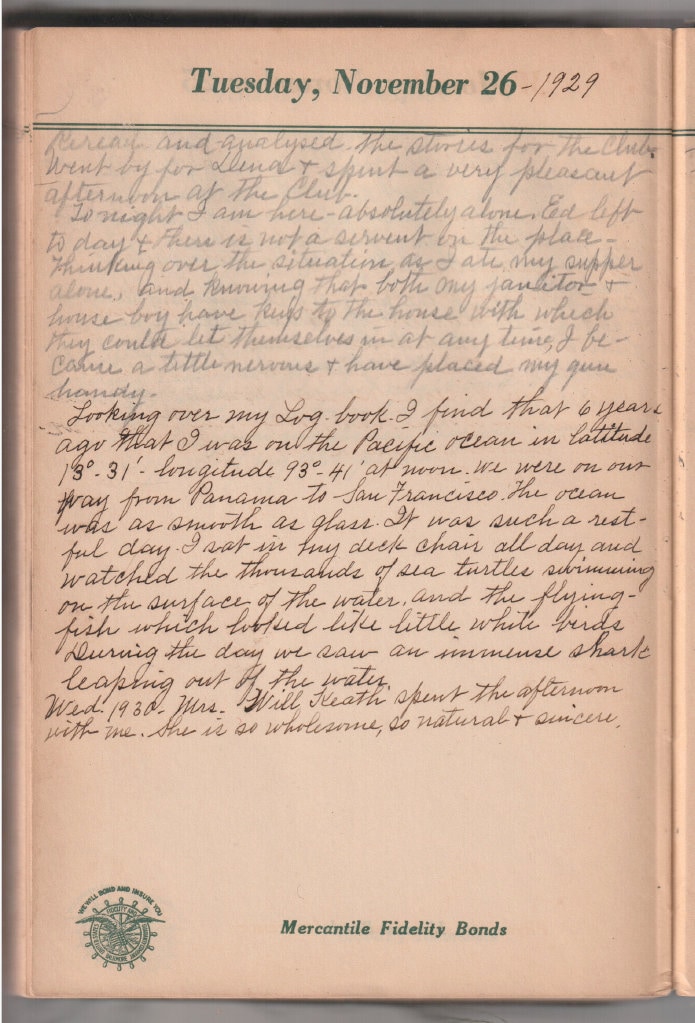 Tuesday, November 26 - 1929
Reread and analysed the stories for the Club.
Went by for Lena + spent a very pleasant
afternoon at the Club.
To night I am here - absolutely alone. Ed left
to day + there is not a servent on the place -
Thinking over the situation as I ate my supper
alone, and knowing that both my janitor +
house boy have keys to the house with which
they could let themselves in at any time, I be-
came a little nervous + have placed my gun
handy -
Looking over my Log-book I find that 6 years
ago that I was on the Pacific ocean in latitude
13°-31'- longitude 93°-41' at noon. We were on our
way from Panama to San Francisco. The ocean
was as smooth as glass. It was such a rest-
ful day. I sat in my deck chair all day and
watched the thousands of sea turtles swimming
on the surface of the water, and the flying-
fish which looked like little white birds
During the day we saw an immense shark
leaping out of the water.
Wed. 1930 - Mrs. Will Keath spent the afternoon
with me. She is so wholesome, so natural + sincere.
WE WILL BOND AND INSURE YOU
Mercantile Fidelity Bonds